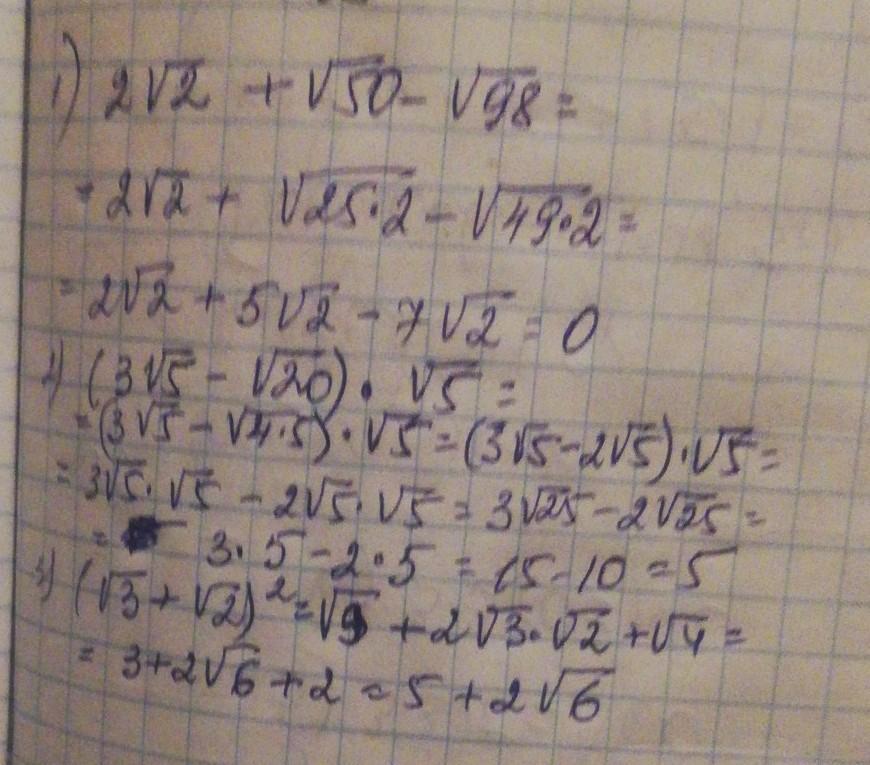 1) 2√2 + √50 - √98 =
= 2√2 + √25·2 - √49·2 =
= 2√2 + 5√2 - 7√2 = 0
2) (3√5 - √20) · √5 =
= (3√5 - √4·5) · √5 = (3√5 - 2√5) · √5 =
= 3√5 · √5 - 2√5 · √5 = 3√25 - 2√25 =
= 3·5 - 2·5 = 15 - 10 = 5
3) (√3 + √2)² = √9 + 2√3·√2 + √4 =
= 3 + 2√6 + 2 = 5 + 2√6